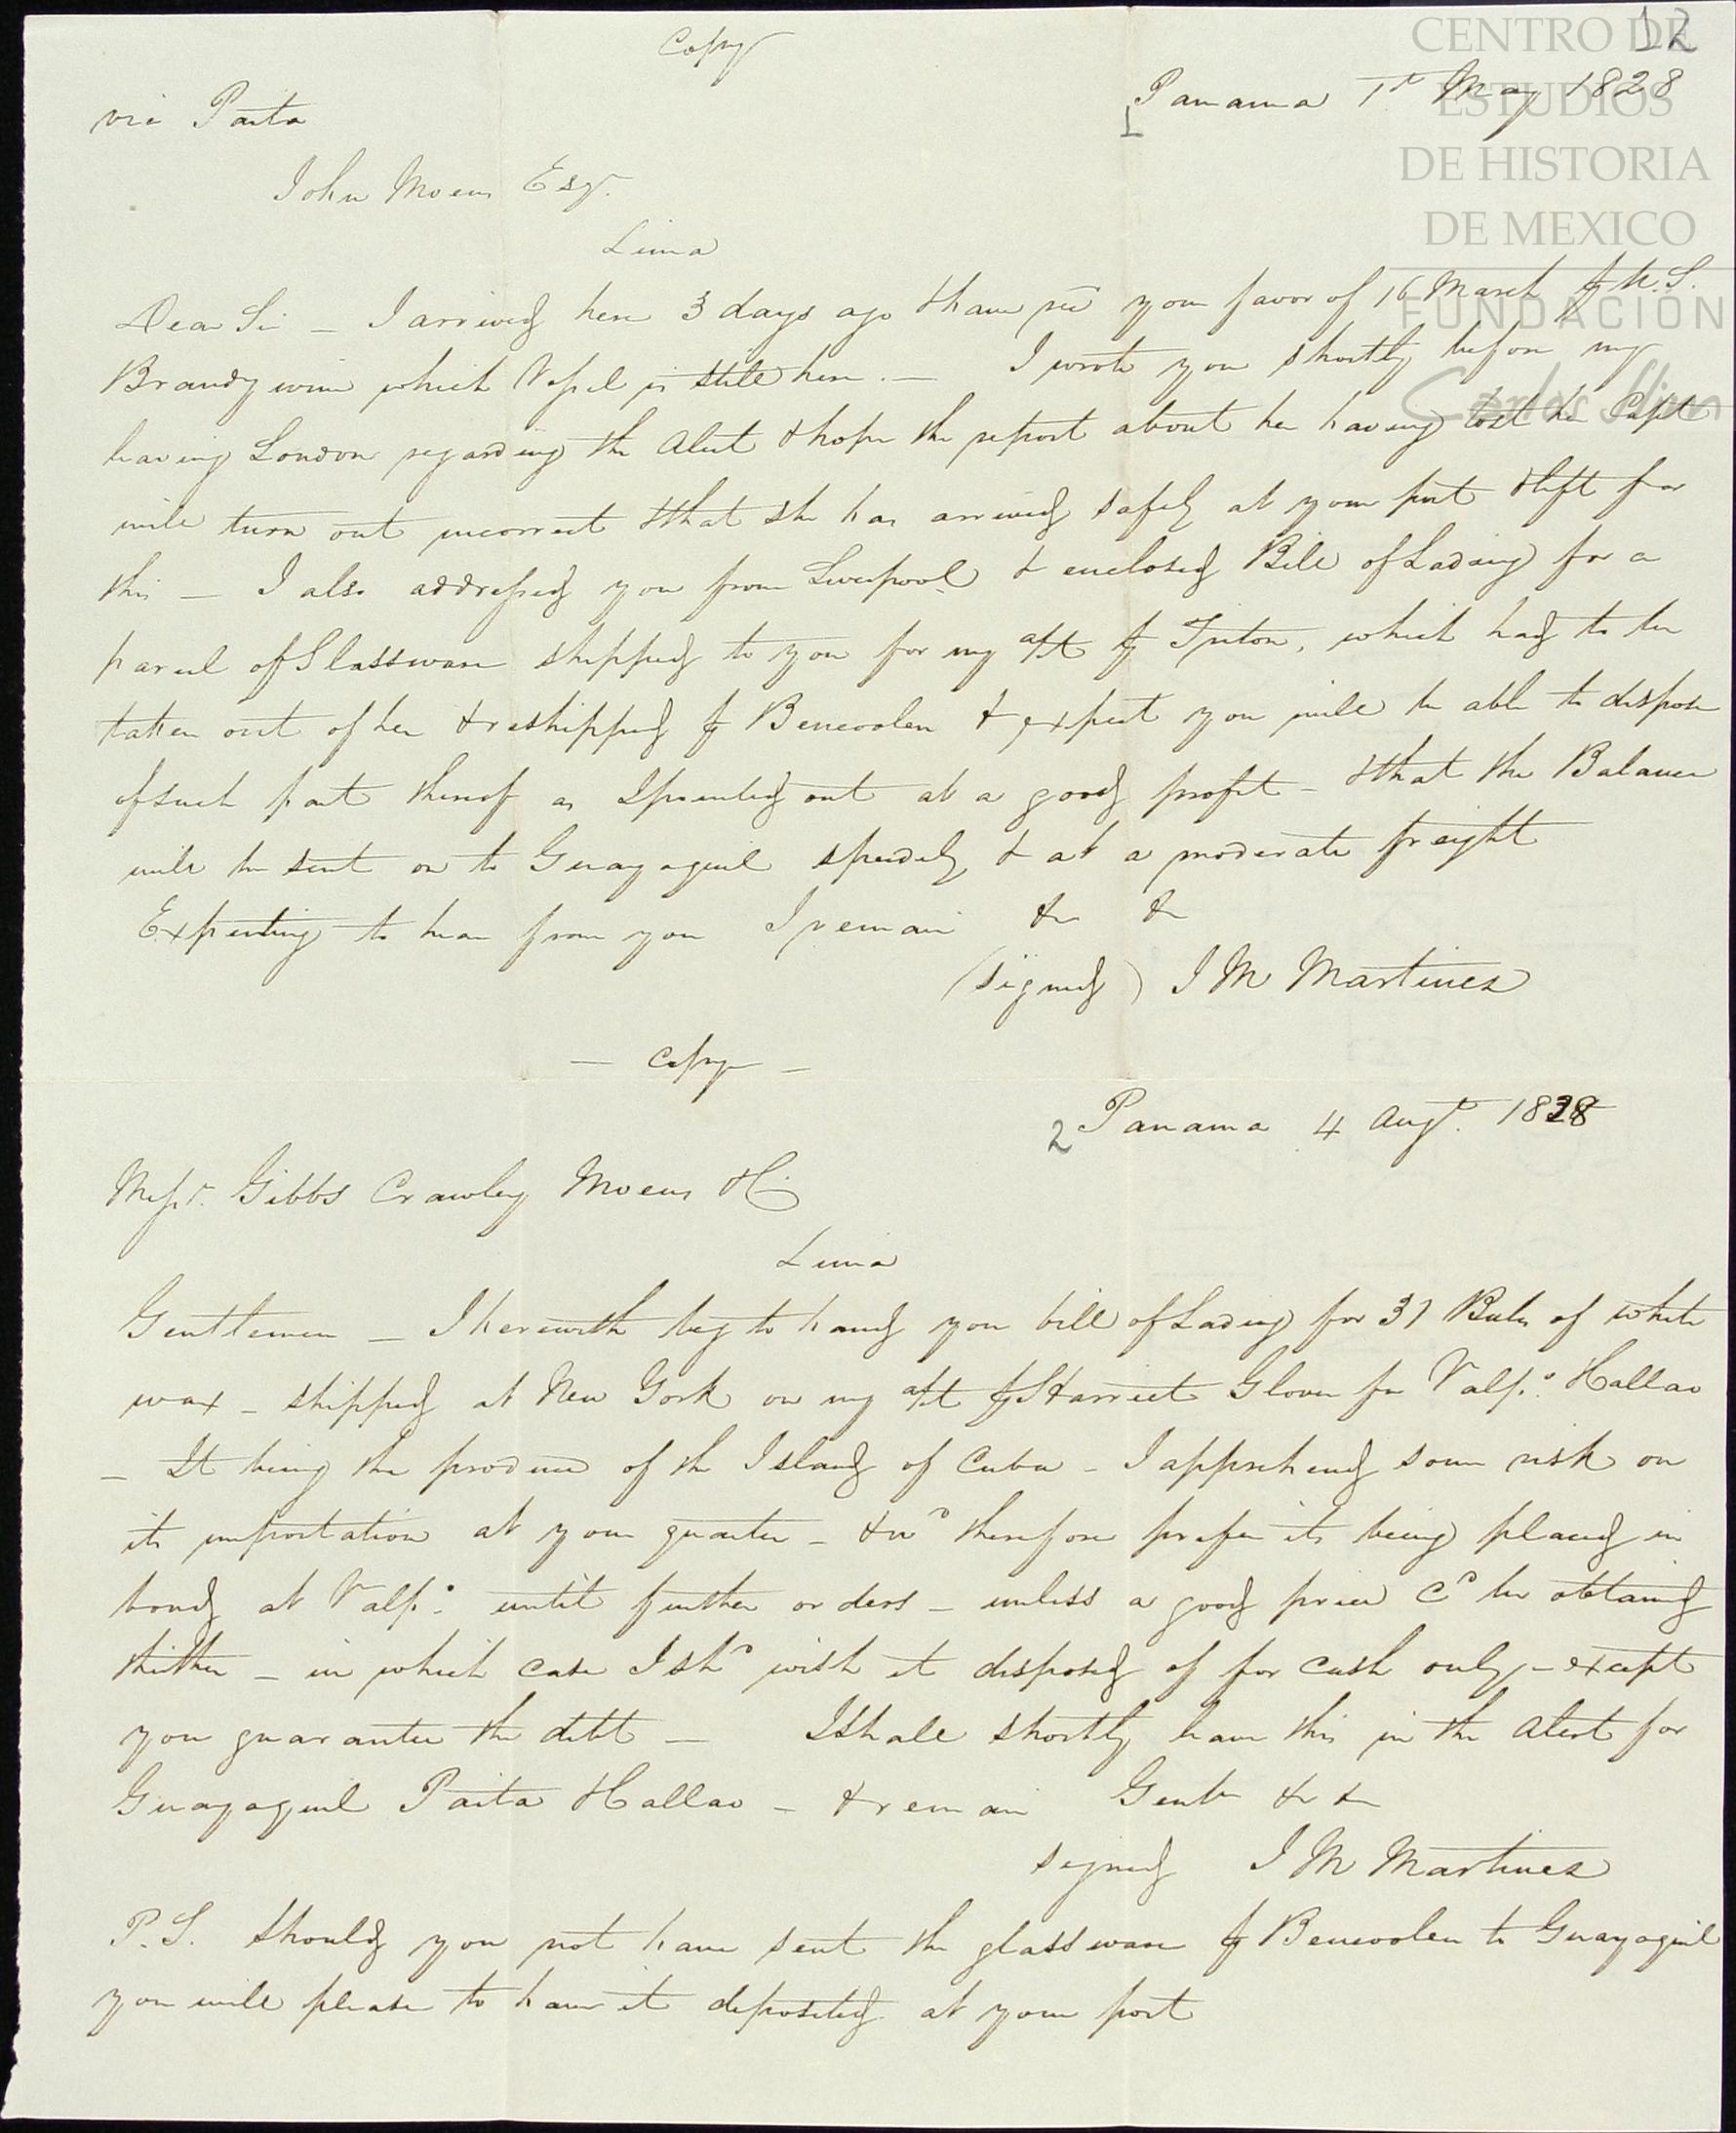 Copy
12
CENTRO DE
ESTUDIOS
DE HISTORIA
DE MEXICO
FUNDACIÓN
Carlos Slim
via Paita
1 Panama 1st May 1828
John Moens Esqr.
Lima
Dear Sir – I arrived here 3 days ago & have recd your favor of 16 March p U.S.
Brandywine which Vessel is still here. – I wrote you shortly before my
leaving London regarding the Alert & hope the report about her having lost her Capt
will turn out incorrect & that she has arrived safely at your port & left for
this – I also addressed you from Liverpool & enclosed Bill of Lading for a
parcel of Glassware shipped to you for my a/ct p Triton, which had to be
taken out of her & reshipped p Bencoolen & expect you will be able to dispose
of such part thereof as I pointed out at a good profit – & that the Balance
will be sent on to Guayaquil speedily & at a moderate freight
Expecting to hear from you I remain &c &c
(signed) J M Martinez
– Copy –
2 Panama 4 Augt. 1828
Messrs. Gibbs Crawley Moens & Co.
Lima
Gentlemen – I herewith beg to hand you bill of Lading for 31 Bales of white
wax – shipped at New York on my a/ct p Harriet Glover for Valpo. & Callao
– It being the produce of the Island of Cuba – I apprehend some risk on
its importation at your quarter – & wd therefore prefer its being placed in
bond at Valpo. until further orders – unless a good price cd be obtained
thither – in which case I shd wish it disposed of for cash only – except
you guarantee the debt – I shall shortly leave this in the Alert for
Guayaquil Paita & Callao – & remain Gentn &c &c
signed J M Martinez
P.S. Should you not have sent the glassware p Bencoolen to Guayaquil
you will please to have it deposited at your port